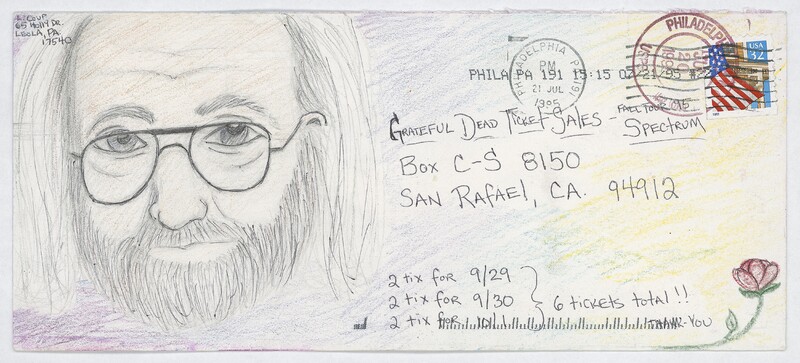 COUP
65 HOLLY DR.
LEOLA, PA
17540
PHILADELPHIA PA 191
PM
21 JUL
1995
PHILA PA 191 15:15 07/21/95
PHILADELPHIA
USA
32
FALL TOUR '95
GRATEFUL DEAD TICKET SALES - SPECTRUM
BOX C-S 8150
SAN RAFAEL, CA. 94912
2 tix for 9/29
2 tix for 9/30
6 TICKETS TOTAL!!
2 tix for 10/1
THANK-YOU